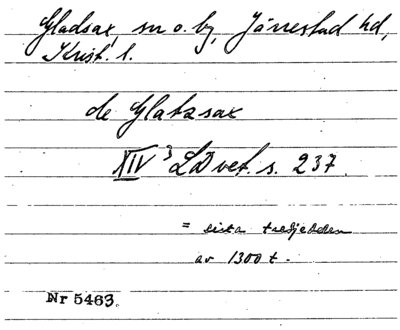 Gladsax, sn o. by, Järrestad hd,
Krist. l.
de Glatzsax
XIV 3 LD vet. s. 237.
= sista tredjedelen
av 1300 t.
Nr 5463.